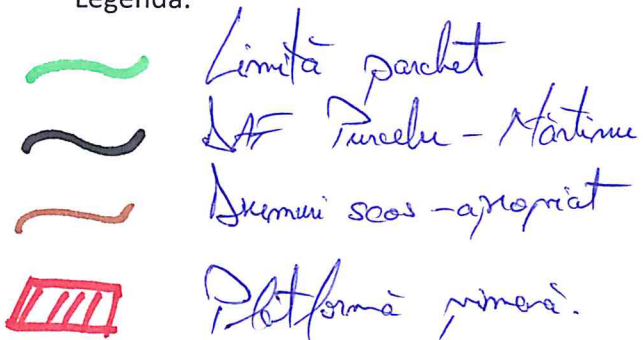 Legenda:
Limită parchet
DAF Purcelu - Mărtinu
Drumuri scos-apropiat
Platformă primară.